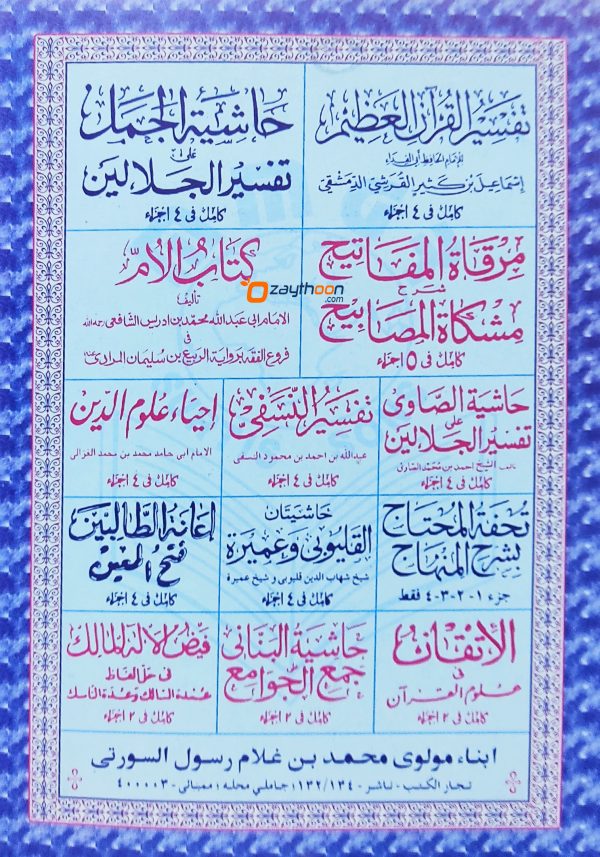 تفسير القرآن العظيم
للإمام الحافظ أبى الفداء
إسماعيل بن كثير القرشى الدمشقى
كامل فى ٤ اجزاء
حاشية الجمل
على
تفسير الجلالين
كامل فى ٤ اجزاء
مرقاة المفاتيح
شرح
مشكاة المصابيح
كامل فى ٥ اجزاء
كتاب الأم
تأليف
الامام ابى عبد الله محمد بن ادريس الشافعى رحمه الله
فى
فروع الفقه برواية الربيع بن سليمان المرادى
Ozaythoon
.com
حاشية الصاوى
على
تفسير الجلالين
تأليف الشيخ احمد بن محمد الصاوى
كامل فى ٤ اجزاء
تفسير النسفى
عبدالله بن احمد بن محمود النسفى
كامل فى ٤ اجزاء
إحياء علوم الدين
الامام ابى حامد محمد بن محمد الغزالى
كامل فى ٤ اجزاء
تحفة المحتاج
بشرح المنهاج
جزء ١-٢-٣-٤ فقط
حاشيتان
القليوبى وعميرة
شيخ شهاب الدين قليوبى و شيخ عميرة
كامل فى ٤ اجزاء
إعانة الطالبين
فتح المعين
كامل فى ٤ اجزاء
الإتقان
فى
علوم القرآن
كامل فى ٢ اجزاء
حاشية البنانى
على
جمع الجوامع
كامل فى ٢ اجزاء
فيض الاله المالك
فى حل الفاظ
عمدة السالك وعدة الناسك
كامل فى ٢ اجزاء
ابناء مولوى محمد بن غلام رسول السورتى
تجار الكتب - ناشر - ١٣٢/١٣٤؛ جاملي محله؛ ممبائى - ٤٠٠٠٠٣